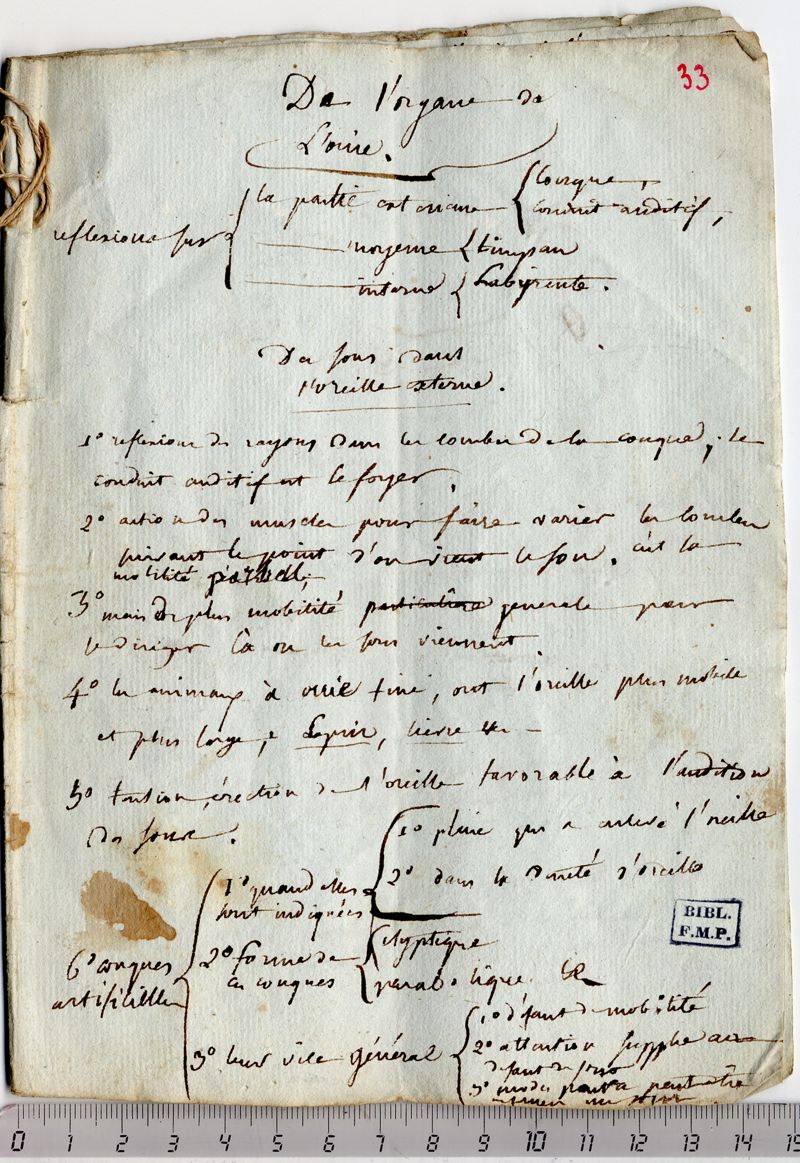 33
De l'organe de
L'ouie.
reflexions sur
la partie externe
conque,
conduit auditif,
moyenne
timpan
interne
Labyrinte.
Des sons dans
l'oreille externe.
1º reflexion des rayons dans les courbes de la conque, le
conduit auditif est le foyer,
2º action des muscles pour faire varier les courbes
suivant le point d'ou vient le son. c'est la
mobilité partielle,
3º mais de plus mobilité particulière generale pour
se diriger là ou les sons viennent.
4º les animaux à ouie fine, ont l'oreille plus mobile
et plus large, Lapin, lievre &c -
5º tension, érection de l'oreille favorable à l'audition
des sons.
6º conques
artificielles
1º quand elles
sont indiquées
1º plaie qui a enlevé l'oreille
2º dans la dureté d'oreille
2º forme de
ces conques
elyptique
parabolique &c
3º leur vice général
1º défaut de mobilité
2º attention supplée au
defaut de
3º peut etre
BIBL.
F.M.P.
0 1 2 3 4 5 6 7 8 9 10 11 12 13 14 15